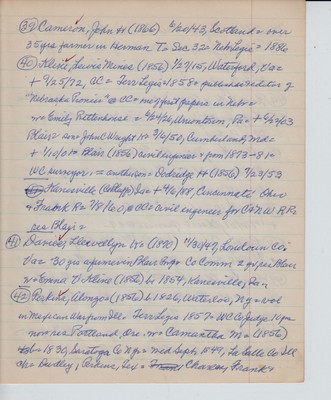 39 Cameron, John H (1866) 6/20/43, Scotland = over
35 yrs farmer in Herman Tp Sec 32 = Neb Legis = 1886
40 Kline, Lewis Miner (1856) 7/27/15, Waterford, Va =
+ 9/25/72, CC = Terr Legis 1858 = publisher & editor of
"Nebraska Pioneer" @ CC = one of first papers in Nebr =
w = Emily Rittenhouse = Uniontown, Pa = +
Blair = son = John Waught H = 7/6/50, Cumberland, Md =
+ Blair (1856) civil engineer = from 1873-81 =
WC surveyor = = Dodridge H (1856) 7/23/53
Kanesville Ia = + 4/16/98, Cincinnati Ohio
+ Frank R = 7/8/60, @ CC = civil engineer for C&NW RR =
res Blair =
41 Davies, Llewellyn (1890) Loudoun Co
Va = 30 yrs a farmer in Blair = Co Comm 2 yrs, res Blair
w = Emma V Kline (1856) b 1854, Kanesville, Ia.
42 Perkins, Alonzo (1856) b 1826, Waterloo, NY = vol
in Mexican War from Ill = Terr Legis 1857 = WC Co Judge 10 yrs
now res Portland, Ore. w = Camantha M = (1856)
b = 1830, Saratoga Co NY = md Sept, 1849, La Salle Co Ill
ch = Dudley, Perkins, Tex = Chaxay Frank =